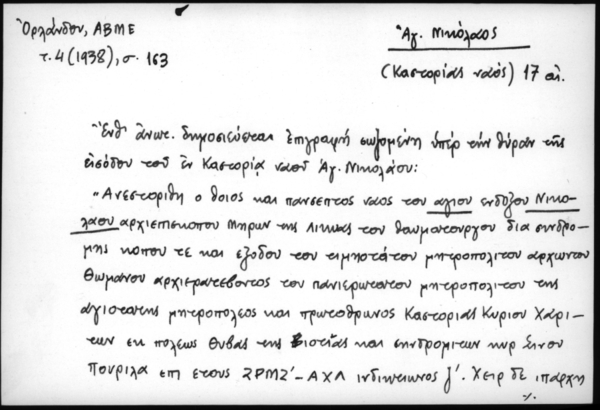 Ὀρλάνδου, ΑΒΜΕ
τ. 4 (1938), σ. 163
Ἅγ. Νικόλαος
(Καστορίας ναός) 17 αἰ.
Ἔνθ' ἀνωτ. δημοσιεύεται ἐπιγραφή σωζομένη ὑπέρ τήν θύραν τῆς
εἰσόδου τοῦ ἐν Καστορίᾳ ναοῦ Ἁγ. Νικολάου:
"Ανεστορίθη ο θοιος και πανσεπτος ναος του αγιου ενδοξου Νικο-
λαου αρχιεπισκοπου Μηρων της Λικιας του θαυματουργου δια συνδρο-
μης κοπου τε και εξοδου του τιμητάτου μητροπολιτου αρχωντου
Θωμάνου αρχιερατεβοντος του πανιερωτατου μητροπολιτου της
αγιοτατης μητροπολεος και πρωτοθρωνος Καστοριας Κυριου Χαρι-
των εκ πολεως Θυβας της Βιοτίας και σηνδρομιτων κυρ
Πουριλα επι ετους ΖΡΜΖ' - ΑΧΛ ινδικτιωνος ζ'. Χειρ δε ιπαρχη
·/.